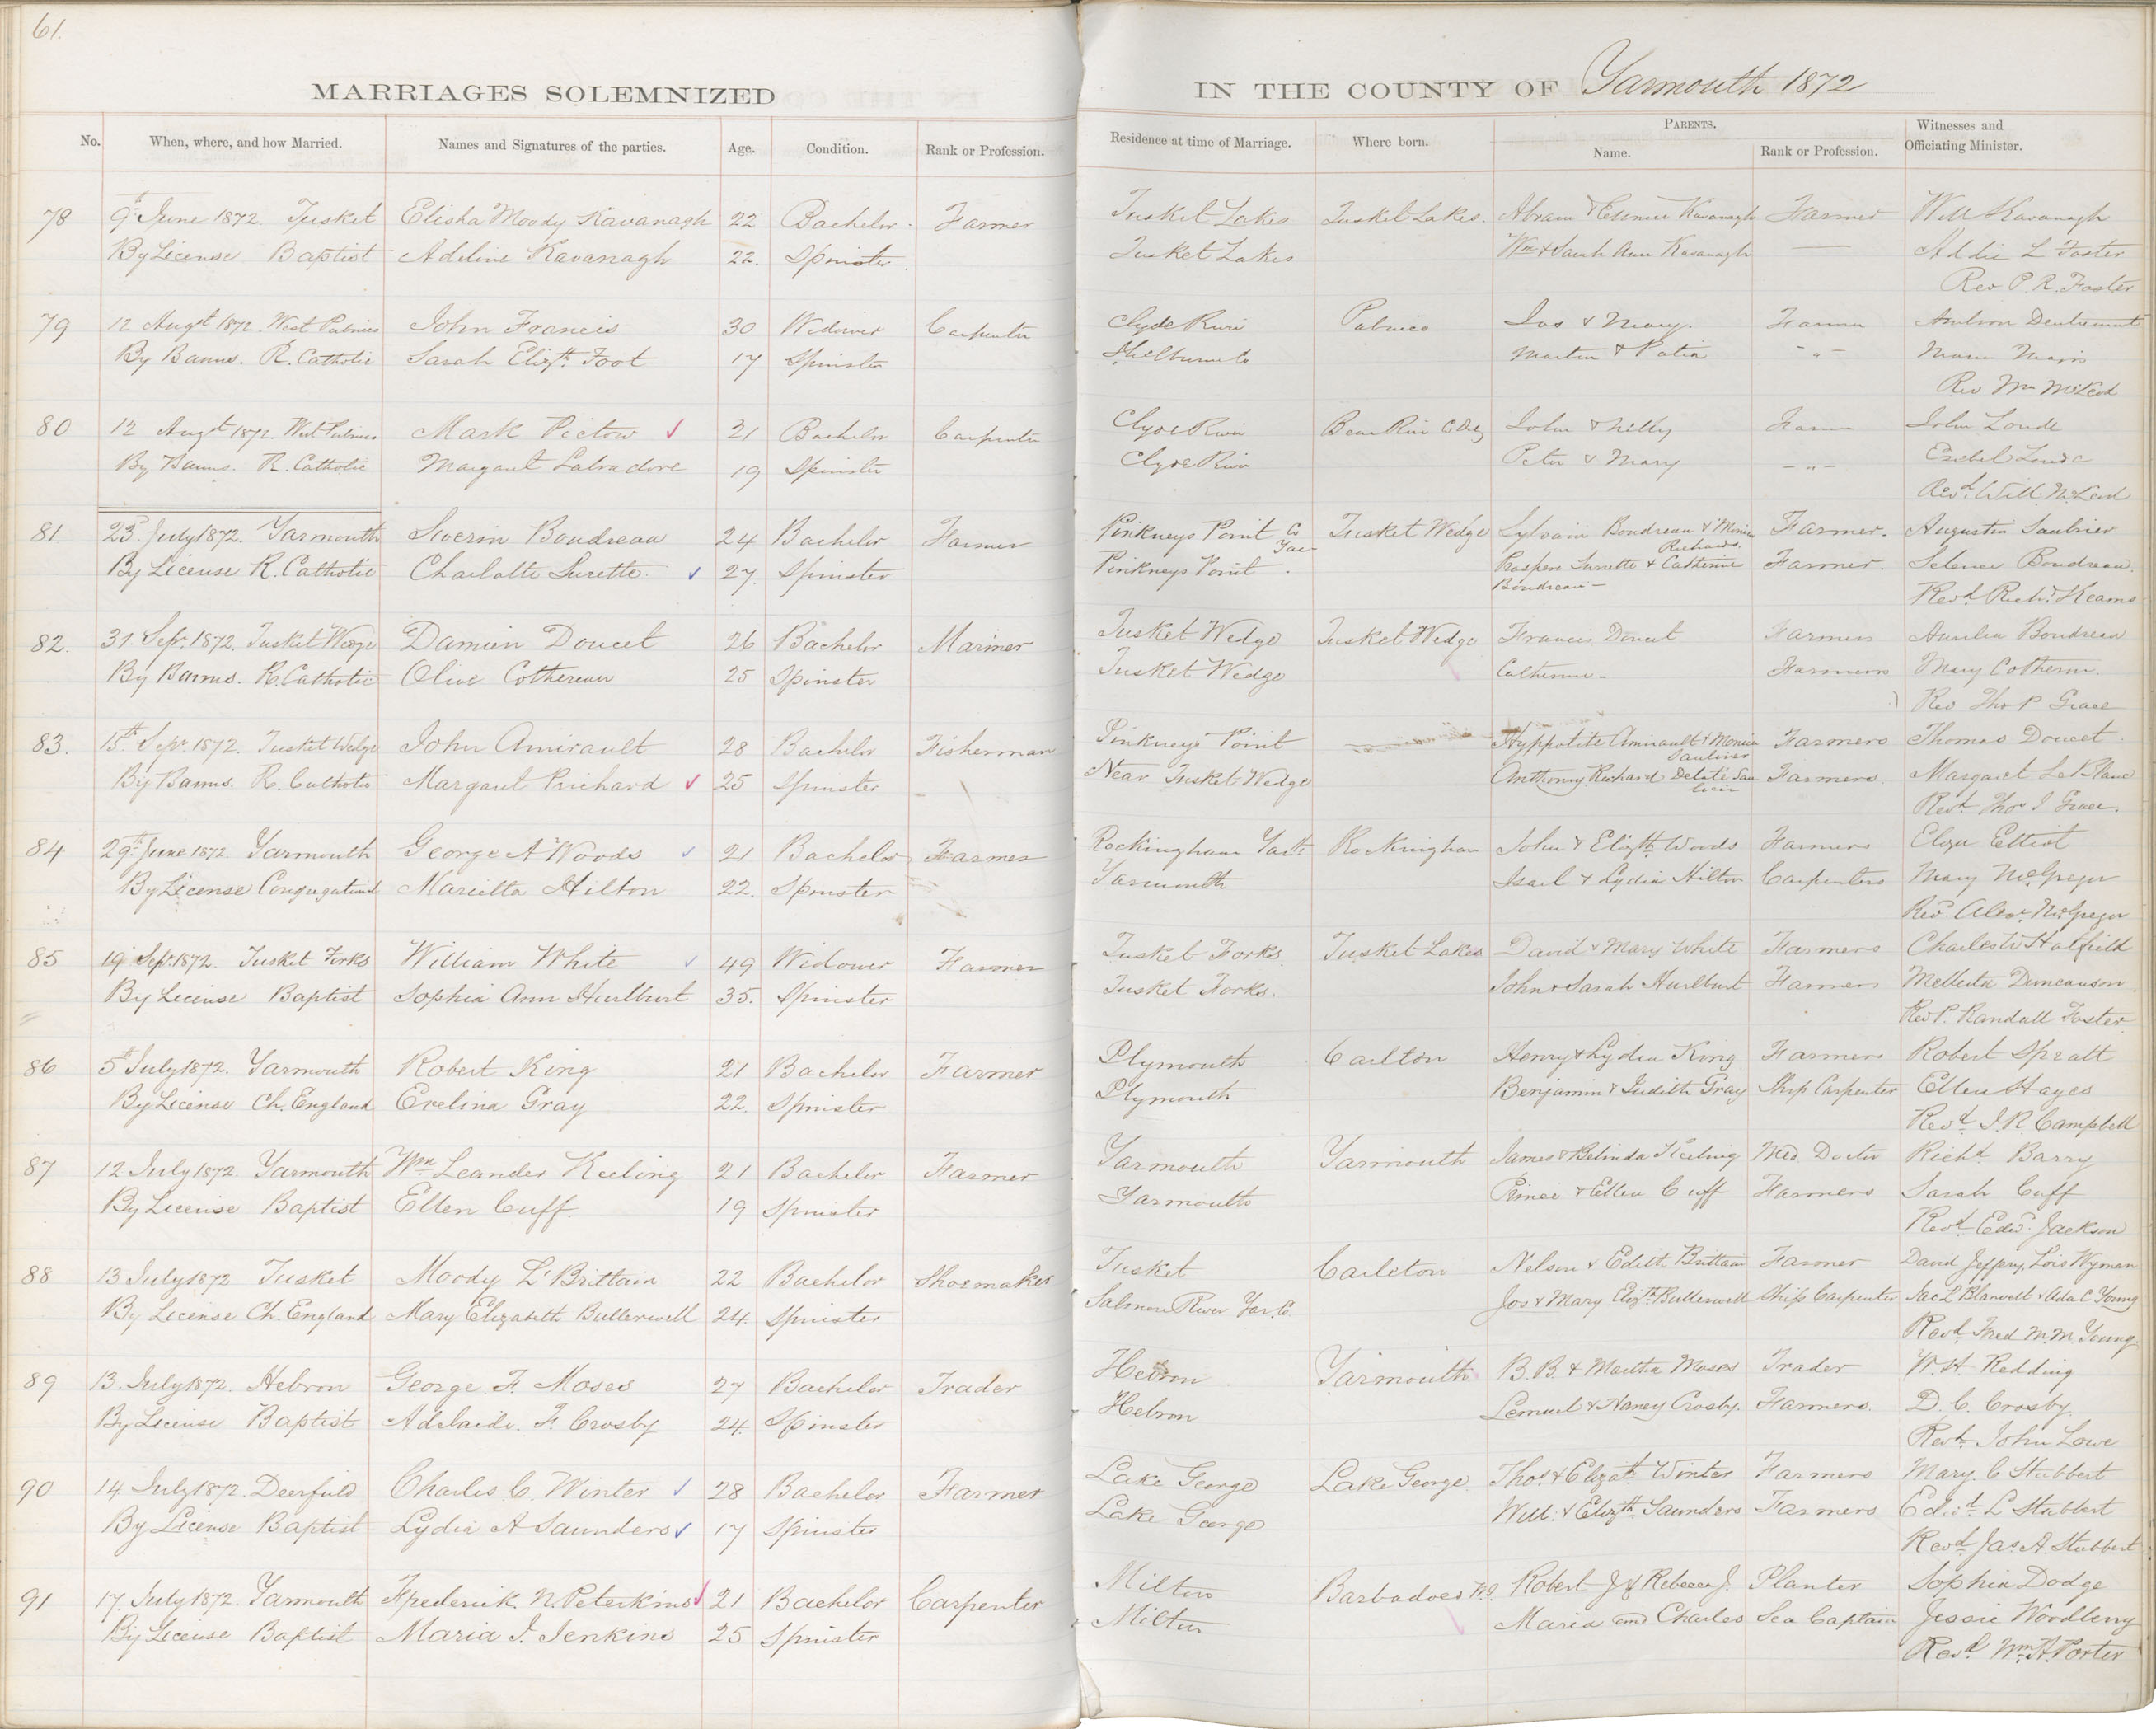 61.
MARRIAGES SOLEMNIZED IN THE COUNTY OF Yarmouth 1872
No. When, where, and how Married. Names and Signatures of the parties. Age. Condition. Rank or Profession. Residence at time of Marriage. Where born. PARENTS. Name. Rank or Profession. Witnesses and Officiating Minister.
78 9th June 1872. Tusket Elisha Moody Kavanagh 22 Bachelor. Farmer Tusket Lakes Tusket Lakes. Abram & Kavanagh Farmer Will Kavanagh
By License Baptist Adeline Kavanagh 22. Spinster. Tusket Lakes Wm & Sarah Ann Kavanagh — Addie L Foster
Rev P. R. Foster
79 12 Augt 1872. West Pubnico John Francis 30 Widower Carpenter Clyde River Pubnico Jos & Mary. Farmer
By Banns. R. Catholic Sarah Elizth Foot 17 Spinster Shelburne Co Martin & Katia - " -
Rev Wm McLeod
80 12 Augt 1872. West Pubnico Mark Pictow 21 Bachelor Carpenter Clyde River Bear River John & Nelly Farmer John
By Banns. R. Catholic Margaret Labradore 19 Spinster Clyde River Peter & Mary - " -
Revd. Will. McLeod
81 23d July 1872. Yarmouth Severin Boudreau 24 Bachelor Farmer Pinkneys Point Co Yar- Tusket Wedge Sylvain Boudreau & Monica Richards. Farmer. Augustin Saulnier
By License R. Catholic Charlotte Surette. 27. Spinster Pinkneys Point. Prosper Surrette & Catherine Boudreau — Farmer. Boudreau.
Revd. Richd. Kearns
82. 31. Sepr. 1872. Tusket Wedge Damien Doucet 26 Bachelor Mariner Tusket Wedge Tusket Wedge Francis Doucet Farmers Boudreau
By Banns. R. Catholic Olive Cothereau 25 Spinster Tusket Wedge Catherine - Farmers Mary
Rev Tho P Grace
83. 15th. Sepr. 1872. Tusket Wedge John Amirault 28 Bachelor Fisherman Pinkneys Point Hyppolite Amirault & Monica Saulnier Farmers Thomas Doucet
By Banns. R. Catholic Margaret Richard 25 Spinster Near Tusket Wedge Anthony Richard Farmers. Margaret LeBlanc
Revd. Thos J Grace.
84 29th. June 1872. Yarmouth George A Woods 21 Bachelor Farmer Rockingham Yarth Rockingham John & Elizth Woods Farmers Eliza Elliot
By License Congregational Marietta Hilton 22. Spinster Yarmouth Isael & Lydia Hilton Carpenters Mary McGregor
Revd. Alexr. McGregor
85 19 Sepr. 1872. Tusket Forks William White 49 Widower Farmer Tusket Forks Tusket Lakes David & Mary White Farmers Charles W Hatfield
By License Baptist Sophia Ann Hurlburt 35. Spinster Tusket Forks. John & Sarah Hurlburt Farmers
Rev P. Randall Foster
86 5th July 1872. Yarmouth Robert King 21 Bachelor Farmer Plymouth Carlton Henry & Lydia King Farmers Robert Spratt
By License Ch. England Evelina Gray 22. Spinster Plymouth Benjamin & Judith Gray Ship Carpenter Ellen Hayes
Revd. J. R Campbell
87 12 July 1872. Yarmouth Wm Leander Keeling 21 Bachelor Farmer Yarmouth Yarmouth James & Belinda Keeling Med. Doctor Richd. Barry
By License Baptist Ellen Cuff. 19 Spinster Yarmouth Prince & Ellen Cuff Farmers Sarah Cuff
Revd. Edwd. Jackson
88 13 July 1872 Tusket Moody L. Brittain 22 Bachelor Shoemaker Tusket Carleton Nelson & Edith Brittain Farmer David Jeffery, Lois Wyman
By License Ch. England Mary Elizabeth Butterwell 24. Spinster Salmon River Yar. Co. Jos & Mary Elizth Butterwell Ship Carpenter Jas L Blauvelt & Ada C Young
Revd. Fred M. M. Young
89 13. July 1872. Hebron George. F. Moses 27 Bachelor Trader Hebron Yarmouth B. B. & Martha Moses Trader W. H. Redding
By License Baptist Adelaide. F. Crosby 24. Spinster Hebron Lemuel & Nancy Crosby. Farmers. D. C. Crosby.
Revd. John Lowe
90 14 July 1872. Deerfield Charles C. Winter 28 Bachelor Farmer Lake George Lake George. Thos. & Elizath Winter Farmers Mary. C Stubbert
By License Baptist Lydia A Saunders 17 Spinster Lake George Will. & Elizth Saunders Farmers Edwd. L Stubbert
Revd. Jas. A. Stubbert
91 17 July 1872. Yarmouth Frederick. N. Peterkins 21 Bachelor Carpenter Milton Barbadoes W.I. Robert J & Rebecca J. Planter Sophia Dodge
By License Baptist Maria J. Jenkins 25 Spinster Milton Maria and Charles Sea Captain Jessie Woodberry
Revd. Wm. A. Porter